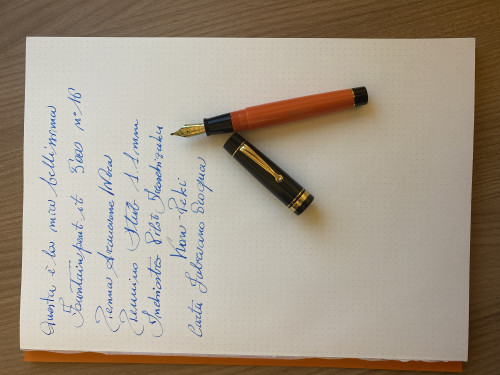 Questa è la mia bellissima
Fountainpen.it n° 16
Penna Arancione
Pennino Stub 1.1 mm
Inchiostro Pilot Iroshizuku
Kon-Peki
Carta Fabriano Ecoqua